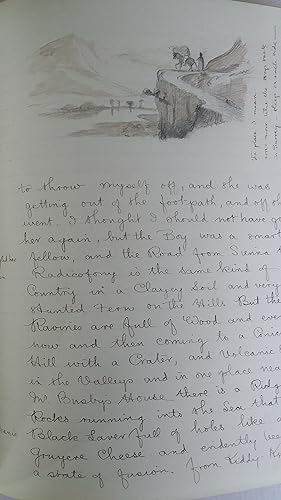 to throw myself off, and she was
getting out of the footpath, and off sh
went. I thought I should not have go
her again, but the Boy was a smart
fellow, and the Road from Sienna t
Radicofony is the same kind of
Country in a Clayey Soil and very
stunted Fern on the Hills But the
Ravines are full of Wood and eve
now and then coming to a Conic
Hill with a Crater, and Volcanic
in the Valleys and in one place nea
Mr Busbys House there is a Ridg
Rocks running into the Sea that
Black Laver full of holes like a
Gruyere Cheese and evidently bee
a state of fusion. from Kiddy Ki